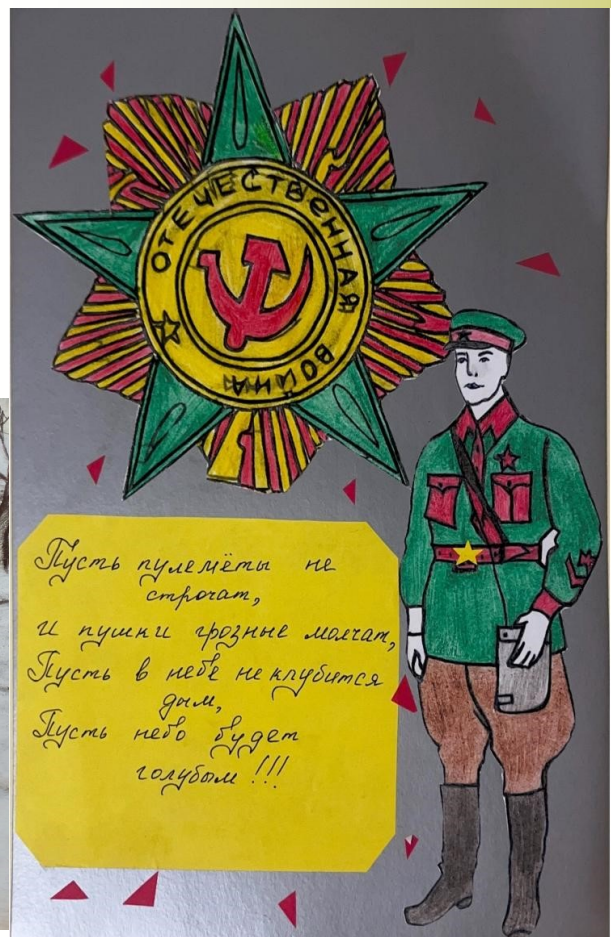 ОТЕЧЕСТВЕННАЯ ВОЙНА
Пусть пулемёты не
строчат,
И пушки грозные молчат,
Пусть в небе не клубится
дым,
Пусть небо будет
голубым !!!